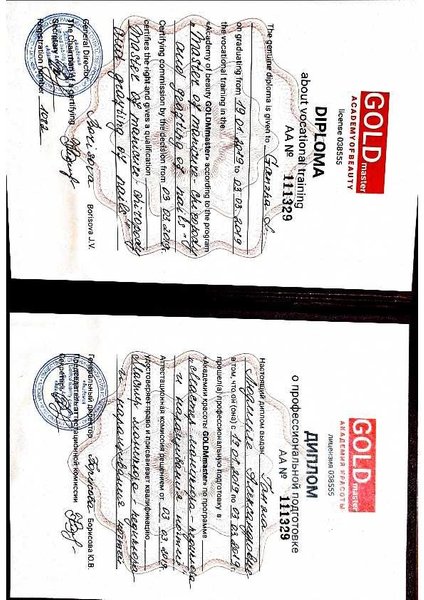 GOLD master
ACADEMY OF BEAUTY
license 038555
DIPLOMA
about vocational training
AA № 111329
The genuine diploma is given to Ganzha L.
on graduating from 19.01.2019 to 03.03.2019
the vocational training in the
«Academy of beauty GOLDMaster» according to the program
«Master of manicure-chiropody
and grafting of nails»
Certifying commission by the decision from 03.03.2019.
certifies the right and gives a qualification
Master of manicure-chiropody
and grafting of nails
General Director Borisova J.V.
The Chairman of a certifying
Secretary
Registration number 1012
GOLD master
АКАДЕМИЯ КРАСОТЫ
лицензия 038555
ДИПЛОМ
о профессиональной подготовке
АА № 111329
Настоящий диплом выдан Ганжа
Людмиле Александровне
в том, что он (она) с 19.01.2019 по 03.03.2019г.
прошел(а) профессиональную подготовку в
«Академии красоты GOLDMaster» по программе
«Мастер маникюра-педикюра
и наращивания ногтей»
Аттестационная комиссия решением от 03.03.2019.
удостоверяет право и присваивает квалификацию
Мастер маникюра-педикюра
и наращивания ногтей
Генеральный директор Борисова Ю.В.
Председатель аттестационной комиссии
Секретарь